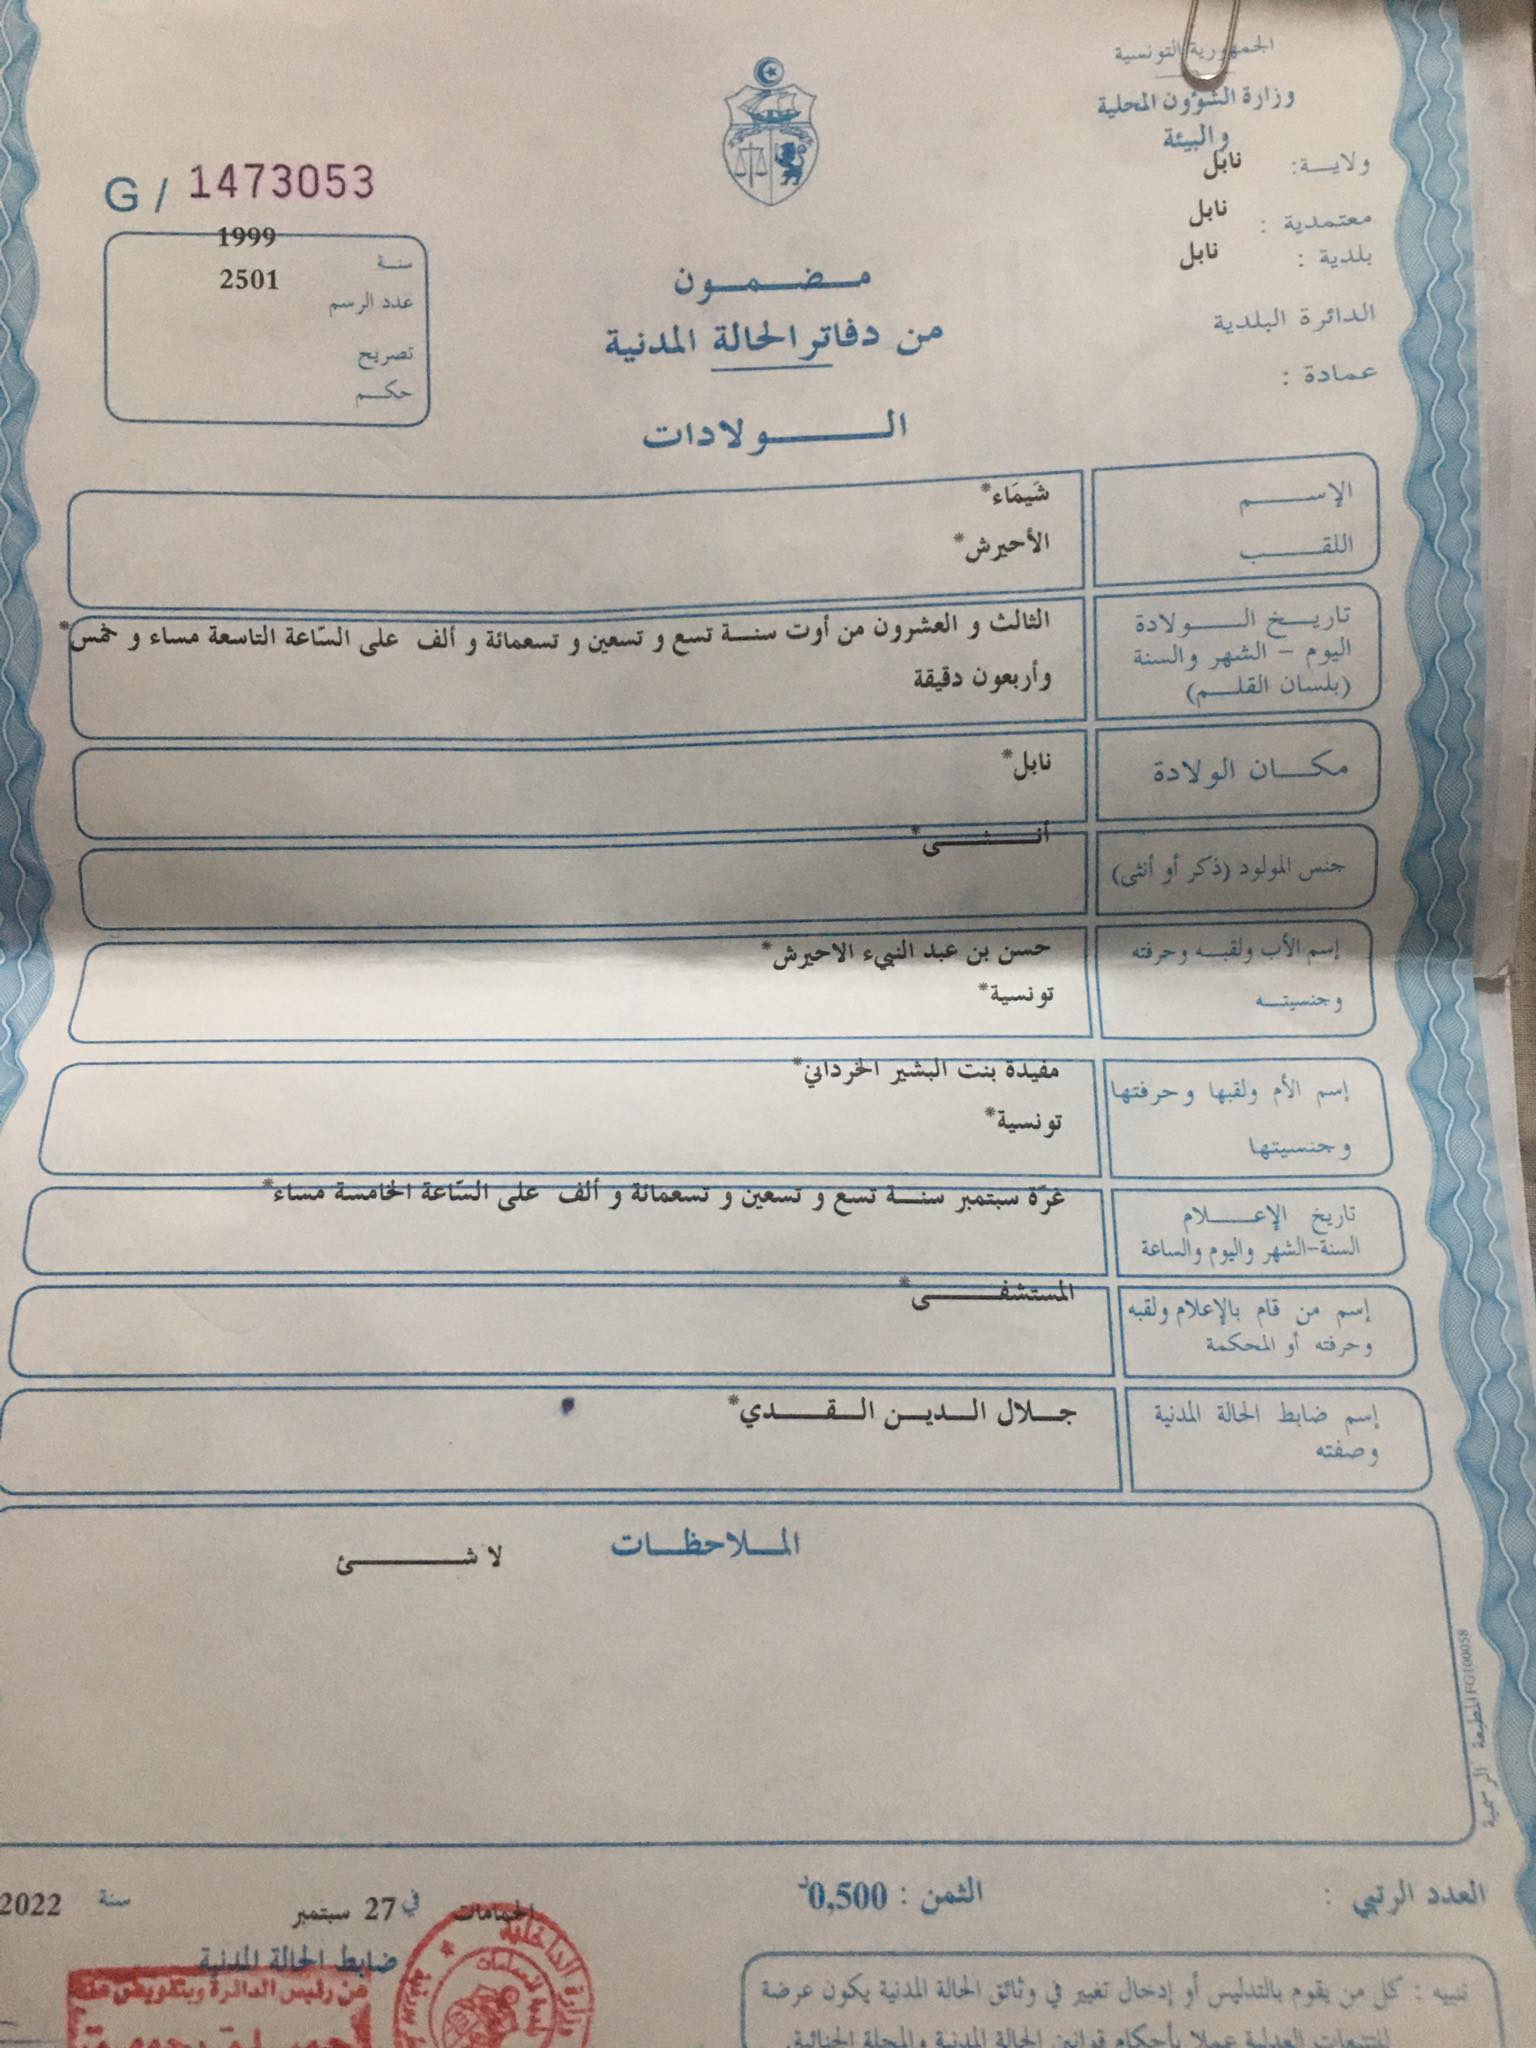 الجمهورية التونسية
وزارة الشؤون المحلية
والبيئة
ولاية: نابل
معتمدية: نابل
بلدية: نابل
الدائرة البلدية
عمادة:
G / 1473053
سنة 1999
عدد الرسم 2501
تصريح
حكم
مضمون
من دفاتر الحالة المدنية
الولادات
الإسم شَيمَاء*
اللقب الأحيرش*
تاريخ الولادة
اليوم - الشهر والسنة
(بلسان القلم)
الثالث و العشرون من أوت سنة تسع و تسعين و تسعمائة و ألف على السّاعة التاسعة مساء و خمس*
وأربعون دقيقة
مكان الولادة نابل*
جنس المولود (ذكر أو أنثى) أنثى*
إسم الأب ولقبه وحرفته حسن بن عبد النبيء الاحيرش*
وجنسيته تونسية*
إسم الأم ولقبها وحرفتها مفيدة بنت البشير الخرداني*
وجنسيتها تونسية*
تاريخ الإعلام
السنة-الشهر واليوم والساعة
غرّة سبتمبر سنة تسع و تسعين و تسعمائة و ألف على السّاعة الخامسة مساء*
إسم من قام بالإعلام ولقبه
وحرفته أو المحكمة
المستشفى*
إسم ضابط الحالة المدنية
وصفته
جلال الدين النقدي*
الملاحظات
لا شئ
المطبعة الرسمية FG100058
العدد الرتبي :
الثمن : 0,500د
الحمامات في 27 سبتمبر سنة 2022
ضابط الحالة المدنية
عن رئيس الدائرة وبتفويض منه
وزارة الداخلية
تنبيه : كل من يقوم بالتدليس أو إدخال تغيير في وثائق الحالة المدنية يكون عرضة
للتتبعات العدلية عملا بأحكام قوانين الحالة المدنية والمجلة الجنائية.